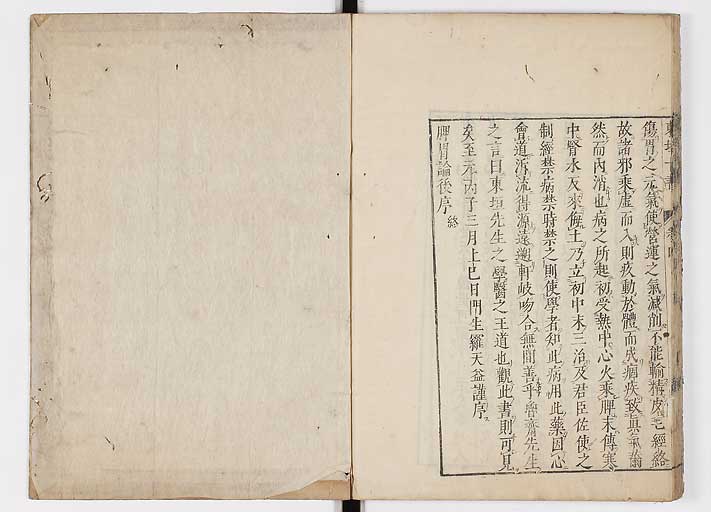 傷胃之元氣使營運之氣減削不能輸精皮毛經絡
故諸邪乘虛而入則疾動於體而成痼疾致真氣
然而內消也病之所起初受熱中心火乘脾末傳寒
中腎水反來侮土乃立初中末三治及君臣佐使之
制經禁病禁時禁之則使學者知此病用此藥因心
會道泝流得源遠遡軒岐吻合無間善乎魯齋先生
之言曰東垣先生之學醫之王道也觀此書則可見
矣至元丙子三月上巳日門生羅天益謹序
脾胃論後序 終